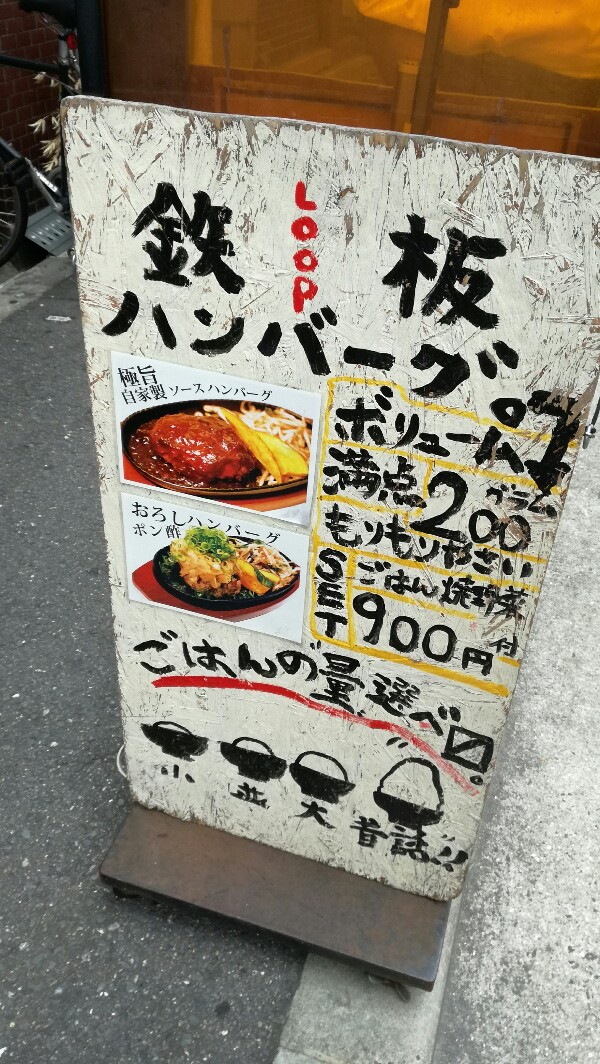 鉄 LOOP 板
ハンバーグ。
極旨
自家製ソースハンバーグ
おろしハンバーグ
ポン酢
ボリューム
満点200グラム
もりもりやさい
SET ごはん焼野菜付
900円
ごはんの量選べ〼。
小 並 大 昔話!!